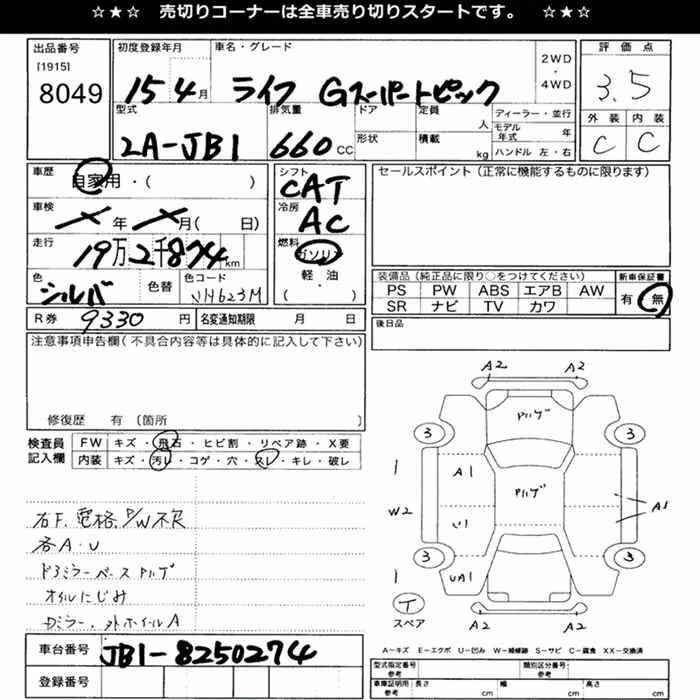 ☆★☆ 売切りコーナーは全車売り切りスタートです。 ☆★☆
出品番号
[1915]
8049
初度登録年月
15 4月
車名・グレード
ライフ Gスーパートピック
2WD
・
4WD
評価点
3.5
外装 内装
C C
型式
LA-JB1
排気量
660 CC
ドア
形状
定員
人
積載
kg
ディーラー・並行
モデル年式 年
ハンドル 左・右
車歴
自家用・( )
車検
年 月( 日)
走行
19万2千874km
色
シルバ
色替
色コード
NH623M
シフト
CAT
冷房
AC
燃料
ガソリン
軽・油
( )
セールスポイント(正常に機能するものに限ります)
装備品(純正品に限り○をつけてください)
PS PW ABS エアB AW
SR ナビ TV カワ
新車保証書
有・無
R券 9330 円
名変通知期限 月 日
後日品
注意事項申告欄(不具合内容等は具体的に記入して下さい)
修復歴 有(箇所 )
検査員
記入欄
FW キズ・飛石・ヒビ割・リペア跡・X要
内装 キズ・汚レ・コゲ・穴・スレ・キレ・破レ
右F.電格.P/W不良
各A・U
ドアミラーベースPハゲ
オイルにじみ
Dミラー・外ホイルA
A2 A2
Pハゲ
3 3
1 A1
Pハゲ
W2 U1
A1
3 3
1 UA1
T
スペア
A2 A2
A=キズ E=エクボ U=凹み W=補修跡 S=サビ C=腐食 XX=交換済
車台番号
JB1-8250274
登録番号
型式指定番号
参考
類別区分番号
参考
車庫証明用
参考
長さ cm
幅 cm
高さ cm